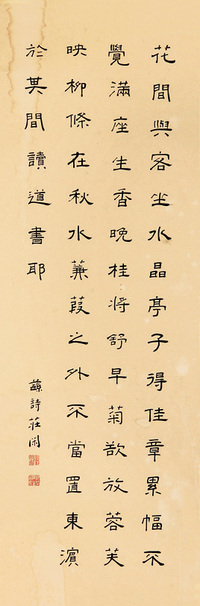 花間與客坐水晶亭子得佳章累幅不
覺滿座生香晚桂將舒早菊欲放蓉芙
映柳條在秋水蒹葭之外不當置東濱
於其間讀道書耶
蘩詩莊閑